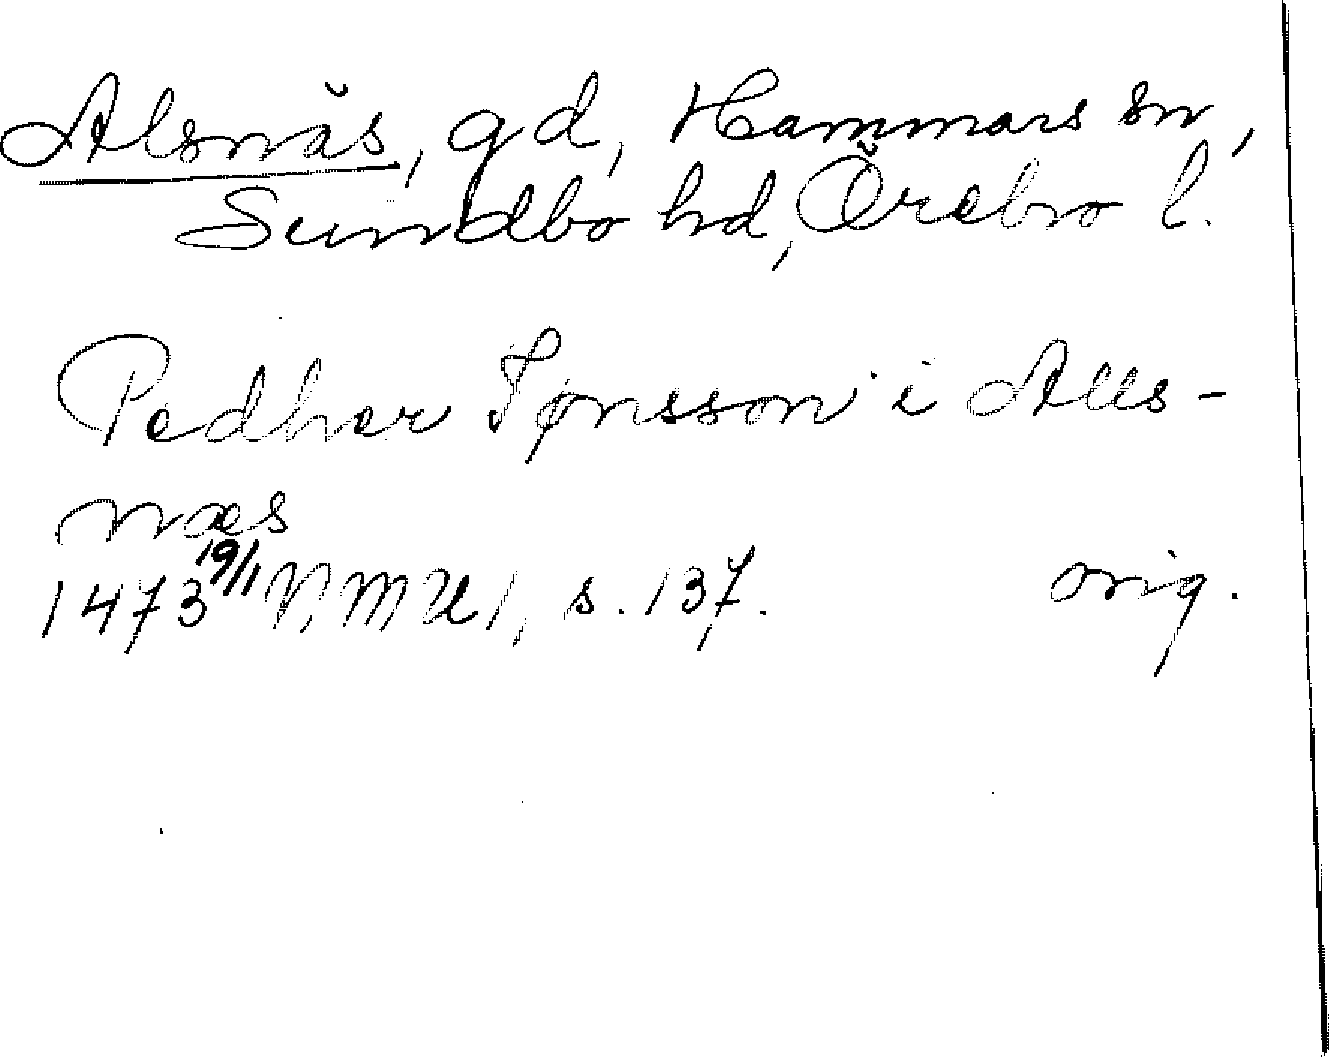 Alsnäs, gd, Hammars sn,
Sundbo hd, Örebro l.
Pedher Jønsson i Alls-
næs
1473 19/1 V, M U 1, s. 137. orig.